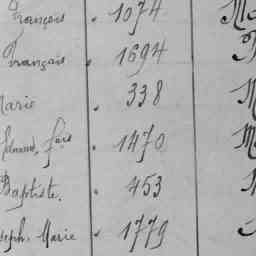 François . 1074 M
Français . 1694
Marie . 338 M
Edmond, fois . 1470 M
Baptiste. . 453
Joseph, Marie . 1779